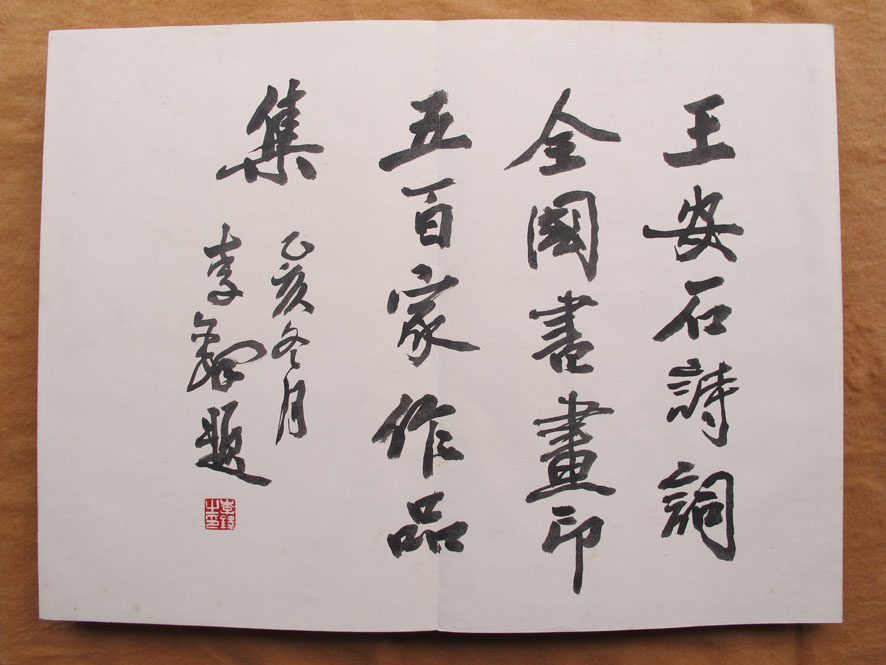 王安石詩詞
全國書畫印
五百家作品
集
乙亥冬月
李鐸題
李鐸之印